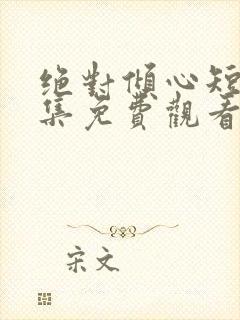 絕對傾心短
集免費觀看
宋文